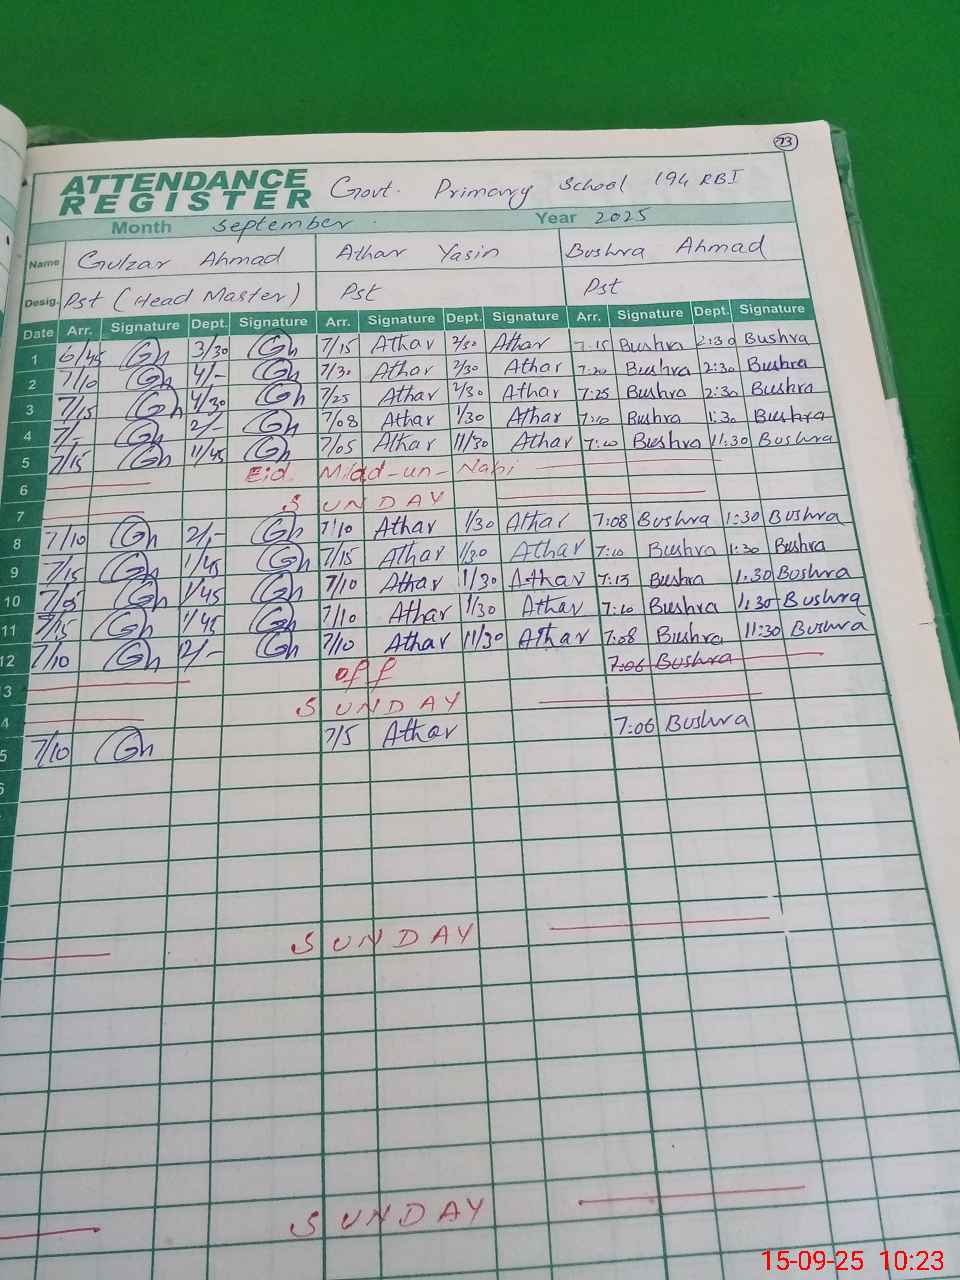 73
ATTENDANCE REGISTER Govt. Primary School 194 RBI
Month September Year 2025
Name Gulzar Ahmad Athar Yasin Bushra Ahmad
Desig. Pst (Head Master) Pst Pst
Date Arr. Signature Dept. Signature Arr. Signature Dept. Signature Arr. Signature Dept. Signature
1 6/45 Gh 3/30 Gh 7/15 Athar 2/30 Athar 7:15 Bushra 2:30 Bushra
2 7/10 Gh 4/- Gh 7/30 Athar 2/30 Athar 7:20 Bushra 2:30 Bushra
3 7/15 Gh 4/30 Gh 7/25 Athar 2/30 Athar 7:25 Bushra 2:30 Bushra
4 7/- Gh 2/- Gh 7/08 Athar 1/30 Athar 7:10 Bushra 1:30 Bushra
5 7/15 Gh 11/45 Gh 7/05 Athar 11/30 Athar 7:10 Bushra 11:30 Bushra
6 Eid Milad-un-Nabi
7 SUNDAY
8 7/10 Gh 2/- Gh 7/10 Athar 1/30 Athar 7:08 Bushra 1:30 Bushra
9 7/15 Gh 1/45 Gh 7/15 Athar 1/30 Athar 7:10 Bushra 1:30 Bushra
10 7/05 Gh 1/45 Gh 7/10 Athar 1/30 Athar 7:15 Bushra 1:30 Bushra
11 7/15 Gh 1/45 Gh 7/10 Athar 1/30 Athar 7:10 Bushra 1:30 Bushra
12 7/10 Gh 12/- Gh 7/10 Athar 11/30 Athar 7:08 Bushra 11:30 Bushra
13 off 7:06 Bushra
4 SUNDAY
5 7/10 Gh 7/5 Athar 7:06 Bushra
6
SUNDAY
SUNDAY
15-09-25 10:23